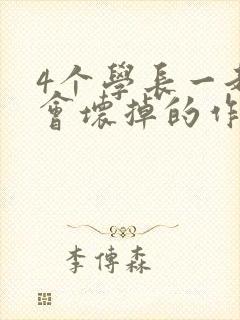 4个學長一
會壞掉的作
李傳森